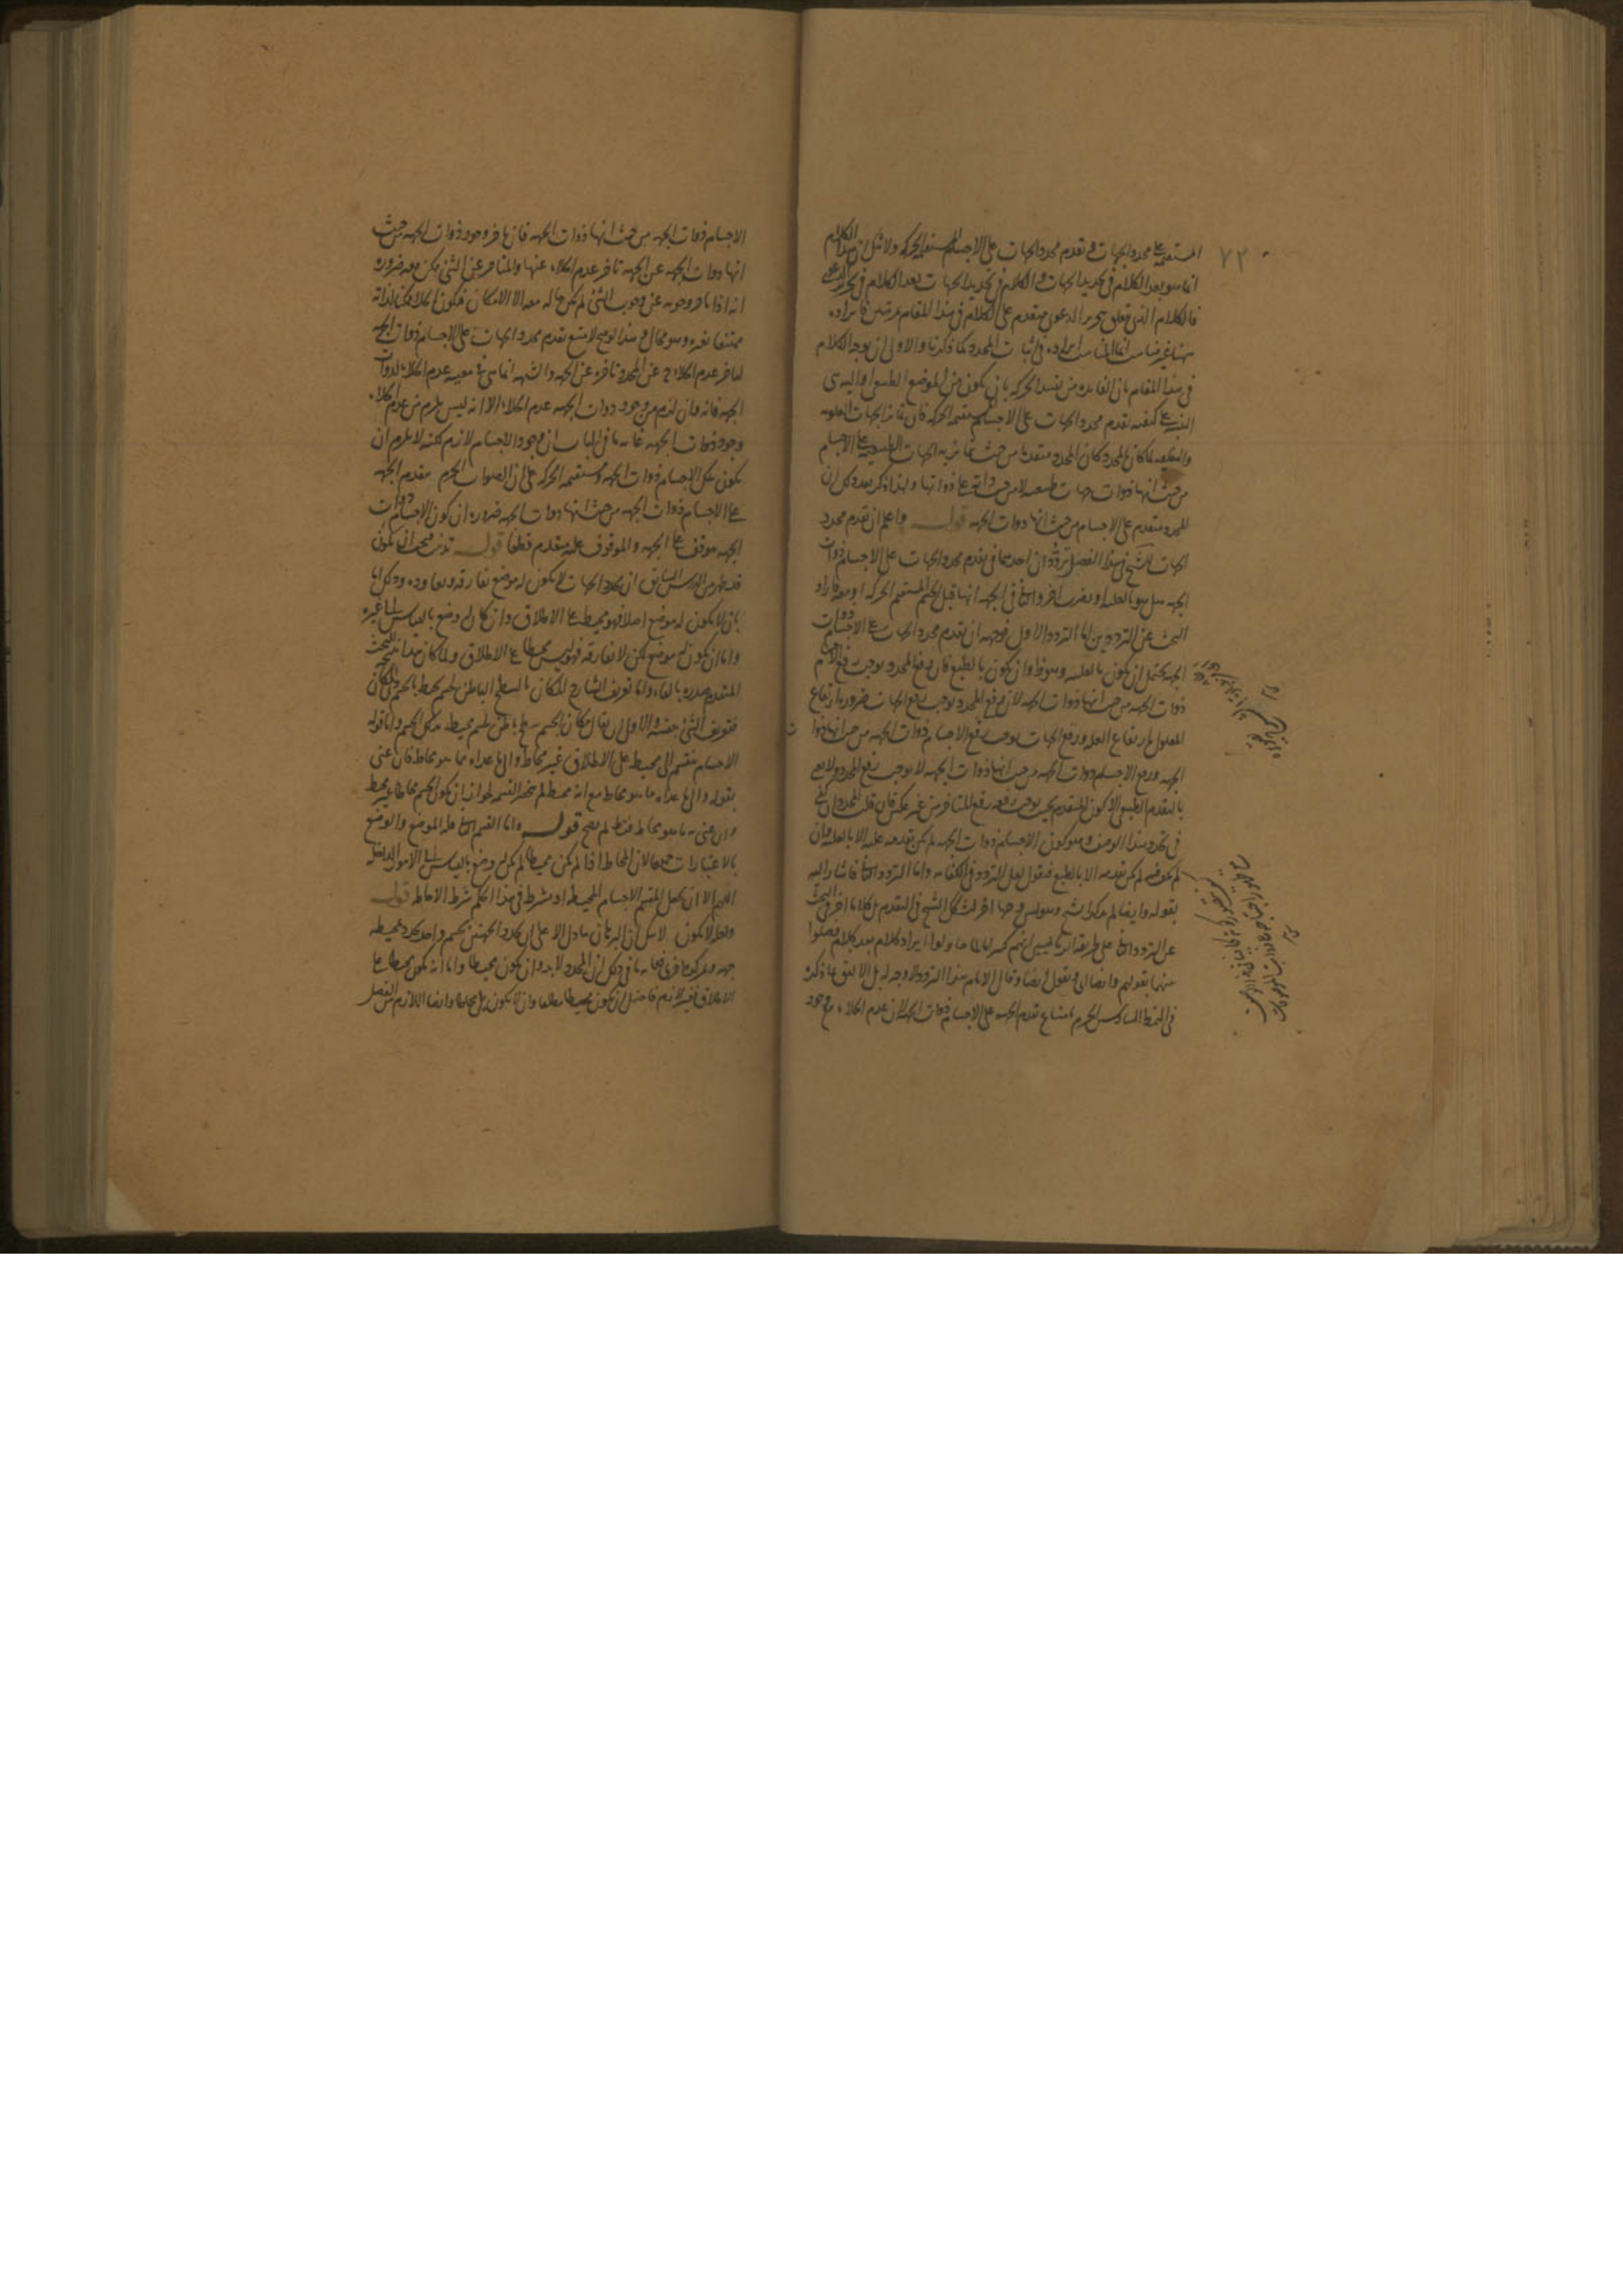 ٧٢
المستقيمة على محدد الجهات في تقدم محدد الجهات على الاجسام المستقيمة الحركة ولا شك ان هذا الكلام
انما هو بعد الكلام في تحديد الجهات والكلام في تحديد الجهات بعد الكلام في تحرير الدعوى
فالكلام الذي يتعلق بتحرير الدعوى متقدم على الكلام في هذا المقام بمرتبتين فايراده
ههنا غير مناسب انما المناسب ايراده في اثبات المحدد كما ذكرنا والاولى ان يوجه الكلام
في هذا المقام بان الفائدة من تقييد الحركة بان يكون من الموضع الطبيعي واليه هي
التنبيه على كيفية تقدم محدد الجهات على الاجسام مستقيمة الحركة فان تمايز الجهات العلوية
والسفلية لما كان بالمحدد كان المحدد متقدما من حيث تمايز به الجهات الطبيعية على الاجسام
من حيث انها ذوات جهات طبيعية لا من حيث ذاته على ذواتها ولهذا ذكر بعد ذلك ان
المحدد متقدم على الاجسام من حيث انها ذوات الجهة قوله واعلم ان تقدم محدد
الجهات للشيخ في هذا الفصل تردّدان احدهما في تقدم محدد الجهات على الاجسام ذوات
الجهة هل هو بالعلية او بضرب اخر والثاني في الجهة انها قبل الجسم المستقيم الحركة او معه فاراد
البحث عن الترددين اما التردد الاول فوجهه ان تقدم محدد الجهات على الاجسام ذوات
الجهة يحتمل ان يكون بالعلية وهو ظ وان يكون بالطبع فان رفع المحدد يوجب رفع الاجسام
ذوات الجهة من حيث انها ذوات الجهة لان رفع المحدد يوجب رفع الجهات ضرورة ارتفاع
المعلول بارتفاع العلة ورفع الجهات يوجب رفع الاجسام ذوات الجهة من حيث انها ذوات
الجهة ورفع الاجسام ذوات الجهة من حيث انها ذوات الجهة لا يوجب رفع المحدد ولا يعنى
بالتقدم الطبيعي الا كون المتقدم بحيث يوجب رفعه رفع المتأخر من غير عكس فان قلت المحدد ان كفى
في تحدد هذا الوصف وهو كون الاجسام ذوات الجهة لم يكن تقدمه عليه الا بالعلية وان
لم يكف فيه لم يكن تقدمه الا بالطبع فنقول لعل التردد في الكفاية واما التردد الثاني فاشار اليه
بقوله وايضا لم يذكر الشيخ وهو ليس وجها اخر لشك الشيخ في التقدم بل كلاما اخر في البحث
عن التردد الثاني على طريقة
منهما بقولهم وايضا او نقول ايضا وقال الامام هذا التردد لا وجه له بل الاليق بما ذكره
في النمط السادس الجزم بامتناع تقدم الجهة على الاجسام ذوات الجهة لان عدم الخلاء مع وجود
الاجسام ذوات الجهة من حيث انها ذوات الجهة فان تأخر وجود ذوات الجهة من حيث
انها ذوات الجهة عن الجهة تأخر عدم الخلاء عنها والمتأخر عن الشئ ممكن معه ضرورة
انه اذا تأخر وجوبه عن وجوب الشئ لم يكن حاله معه الا الامكان فيكون الخلاء ممكنا لذاته
ممتنعا لغيره وهو محال وبهذا الوجه لا يمتنع تقدم محدد الجهات على الاجسام ذوات الجهة
لتأخر عدم الخلاء ح عن المحدد تأخره عن الجهة والشبهة انما هي في معية عدم الخلاء لذوات
الجهة فانه وان لزم من وجود ذوات الجهة عدم الخلاء الا انه ليس يلزم من عدم الخلاء
وجود ذوات الجهة غاية ما في الباب ان وجود الاجسام لازم لكنه لا يلزم ان
يكون تلك الاجسام ذوات الجهة ومستقيمة الحركة على ان الصواب الجزم بتقدم الجهة
على الاجسام ذوات الجهة من حيث انها ذوات الجهة ضرورة ان كون الاجسام ذوات
الجهة موقوف على الجهة والموقوف عليه متقدم قطعا قوله تذنيب يجب ان يكون
قد ظهر من الدرس السابق ان محدد الجهات لا يكون له موضع يفارقه ويعاوده وذلك اما
بان لا يكون له موضع اصلا فهو محيط على الاطلاق وان كان له وضع بالقياس الى غيره
واما ان يكون له موضع لكن لا يفارقه فهو ليس بمحيط على الاطلاق ولما كان هذا نتيجة للبحث
المتقدم صدره بالفاء واما تعريف الشارح المكان بالسطح الباطن لجسم يحيط بالجسم ذي المكان
فتعريف الشئ بنفسه والاولى ان يقال مكان الجسم سطح باطن لجسم محيط بذلك الجسم واما قوله
الاجسام تنقسم الى محيط على الاطلاق غير محاط والى ما عداه مما هو محاط فان عنى
بقوله والى ما عداه ما هو محاط مع انه محيط لم ينحصر القسمة لجواز ان يكون الجسم محاطا غير محيط
وان عنى به ما هو محاط فقط لم يصح قوله واما القسم الثاني فله الموضع والوضع
بالاعتبارات جميعا لان المحاط اذا لم يكن محيطا لم يكن له وضع بالقياس الى الامور الداخلة
اللهم الا ان يجعل المقسم الاجسام المحيطة او يشترط في هذا الحكم شرط الاحاطة قوله
ولعله لا يكون لا شك ان البرهان ما دل الا على ان تحدد الجهتين بجسم واحد يحدد بمحيطه
جهة وبمركزه اخرى فغاية ما في ذلك ان المحدد لا بد وان يكون محيطا واما انه يكون محيطا على
الاطلاق فغير لازم فاحتمل ان يكون محيطا مطلقا وان لا يكون بل محاطا وايضا اللازم من الفصل